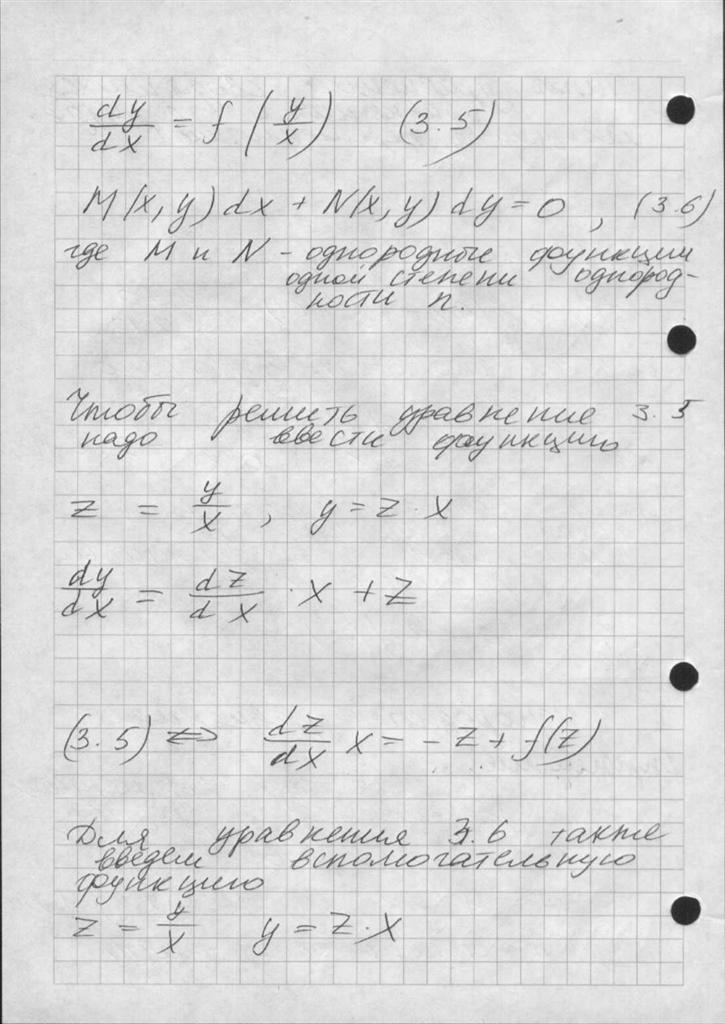 dy/dx = f (y/x) (3.5)
M(x, y) dx + N(x, y) dy = 0 , (3.6)
где M и N - однородные функции
одной степени однород-
ности n.
Чтобы решить уравнение 3.5
надо ввести функцию
z = y/x , y = z · x
dy/dx = dz/dx · x + z
(3.5) <=> dz/dx x = - z + f(z)
Для уравнения 3.6 также
введем вспомогательную
функцию
z = y/x y = z · x